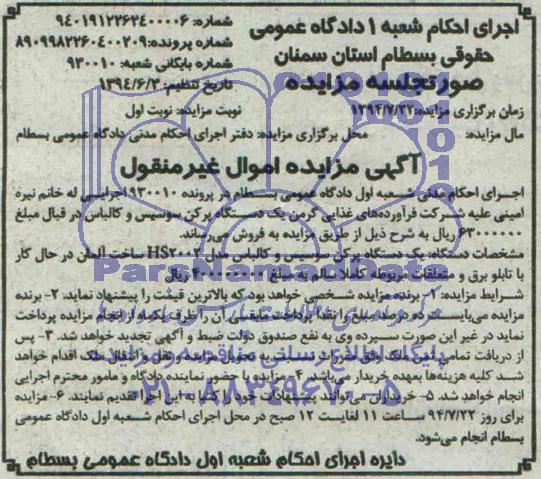 اجرای احکام شعبه ۱ دادگاه عمومی
حقوقی بسطام استان سمنان
صورتجلسه مزایده
شماره: ۹۴۰۱۹۱۲۲۶۲۴۰۰۰۰۶
شماره پرونده: ۸۹۰۹۹۸۲۲۶۰۴۰۰۲۰۹
شماره بایگانی شعبه: ۹۳۰۰۱۰
تاریخ تنظیم: ۱۳۹۴/۶/۳
زمان برگزاری مزایده: ۱۳۹۴/۷/۲۲ نوبت مزایده: نوبت اول
مال مزایده: محل برگزاری مزایده: دفتر اجرای احکام مدنی دادگاه عمومی بسطام
آگهی مزایده اموال غیر منقول
اجرای احکام مدنی شعبه اول دادگاه عمومی بسطام در پرونده ۹۳۰۰۱۰ اجرایی له خانم نیره
امینی علیه شرکت فرآورده‌های غذایی گرمن یک دستگاه پرکن سوسیس و کالباس در قبال مبلغ
۶۳۰۰۰۰۰۰ ریال به شرح ذیل از طریق مزایده به فروش می‌رساند.
مشخصات دستگاه: یک دستگاه پرکن سوسیس و کالباس مدل HS2002 ساخت آلمان در حال کار
با تابلو برق و متعلقات مربوطه کاملا سالم به مبلغ ریال
شرایط مزایده: ۱- برنده مزایده شخصی خواهد بود که بالاترین قیمت را پیشنهاد نماید. ۲- برنده
مزایده می‌بایست ده درصد مبلغ را نقدا پرداخت مابقی آن را ظرف یکماه از انجام مزایده پرداخت
نماید در غیر این صورت سپرده وی به نفع صندوق دولت ضبط و آگهی تجدید خواهد شد. ۳- پس
از دریافت تمامی ملک وفق مقررات نسبت به تحویل مزایده و نقل و انتقال ملک اقدام خواهد
شد کلیه هزینه‌ها بعهده خریدار می‌باشد. ۴- مزایده با حضور نماینده دادگاه و مامور محترم اجرایی
انجام خواهد شد. ۵- خریداران می‌توانند پیشنهادات خود را کتبا به این اجرا تقدیم نمایند. ۶- مزایده
برای روز ۹۴/۷/۲۲ ساعت ۱۱ لغایت ۱۲ صبح در محل اجرای احکام شعبه اول دادگاه عمومی
بسطام انجام می‌شود.
دایره اجرای احکام شعبه اول دادگاه عمومی بسطام
ParsNamadData
پایگاه اطلاع رسانی مناقصه و مزایده
۰۲۱-۸۸۳۴۹۶۷۰-۵